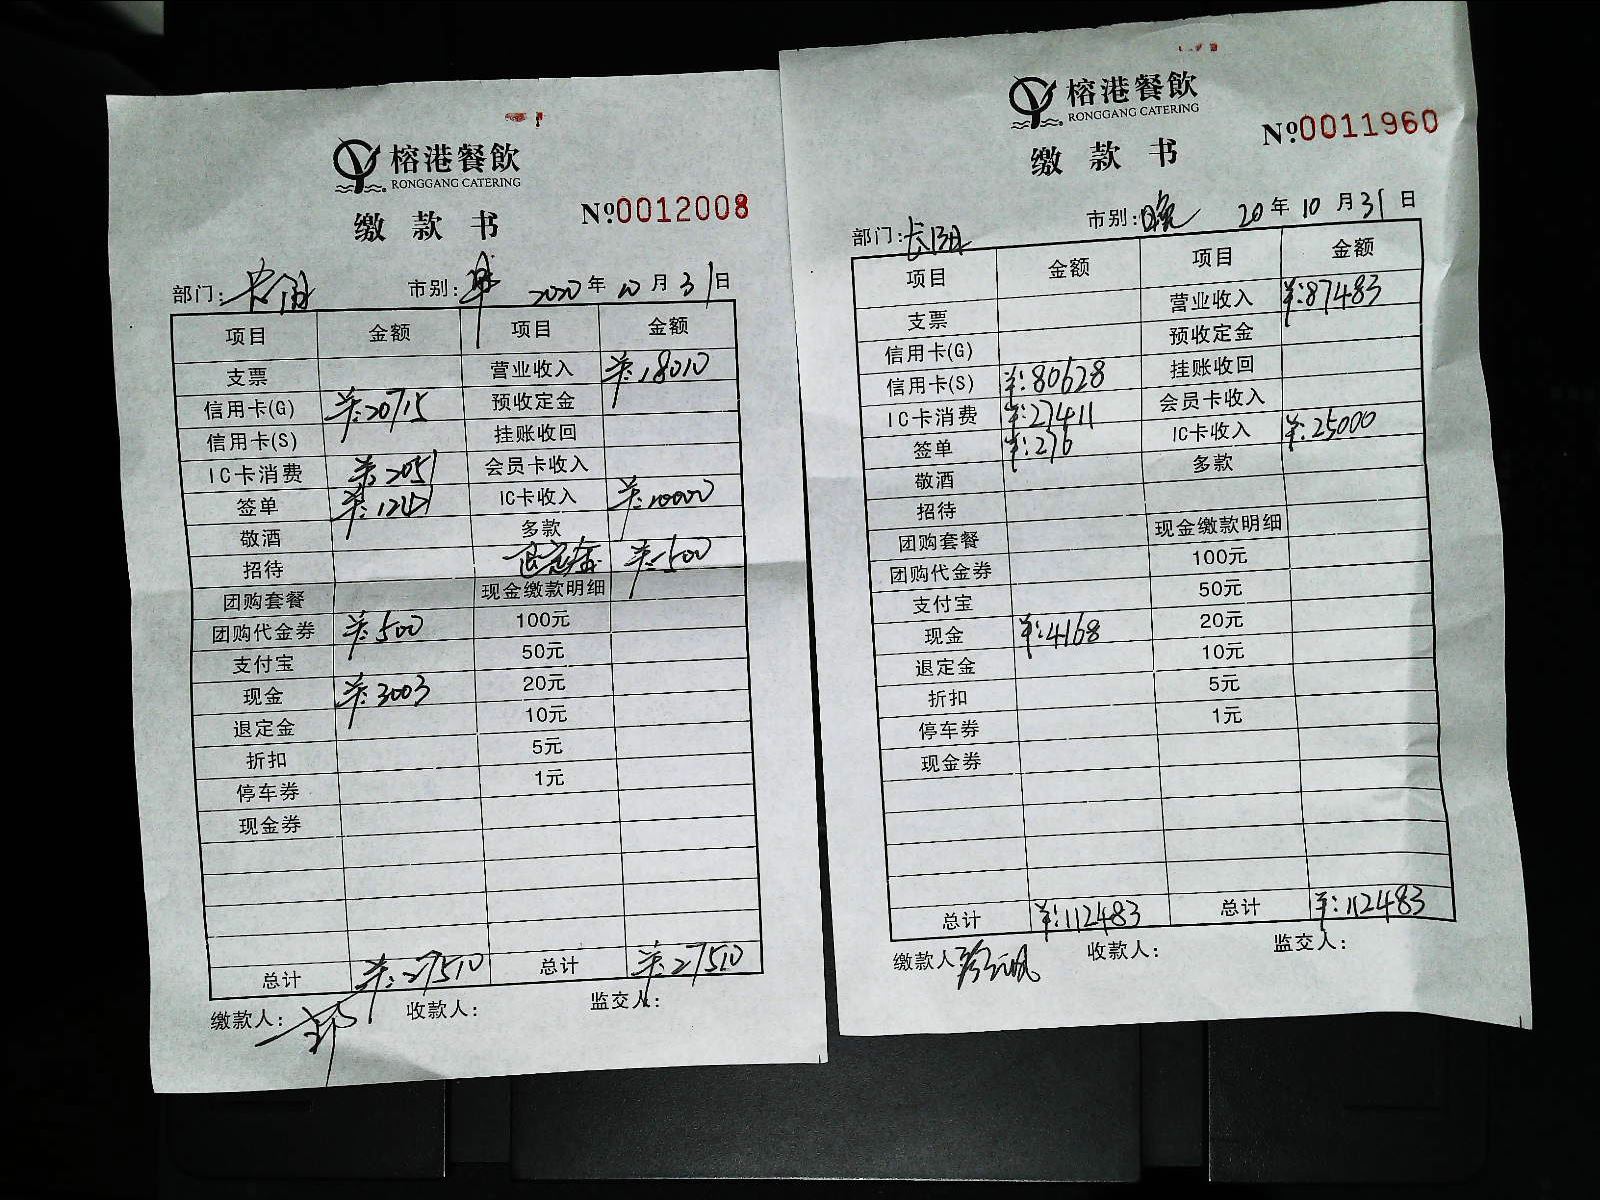 榕港餐飲
RONGGANG CATERING
缴款书
№0012008
部门: 市别: 2020年10月31日
项目 金额 项目 金额
支票 营业收入 ¥:18010
信用卡(G) ¥:20715 预收定金
信用卡(S) 挂账收回
IC卡消费 ¥:2051 会员卡收入
签单 ¥:1241 IC卡收入 ¥:10000
敬酒 多款
招待 定金 ¥:-500
团购套餐 现金缴款明细
团购代金券 ¥:500 100元
支付宝 50元
现金 ¥:3003 20元
退定金 10元
折扣 5元
停车券 1元
现金券
总计 ¥:27510 总计 ¥:27510
缴款人: 收款人: 监交人:
榕港餐飲
RONGGANG CATERING
缴款书
№0011960
部门:长阳 市别:晚 20年10月31日
项目 金额 项目 金额
支票 营业收入 ¥:87483
信用卡(G) 预收定金
信用卡(S) ¥:80628 挂账收回
IC卡消费 ¥:27411 会员卡收入
签单 ¥:276 IC卡收入 ¥:25000
敬酒 多款
招待
团购套餐 现金缴款明细
团购代金券 100元
支付宝 50元
现金 ¥:4168 20元
退定金 10元
折扣 5元
停车券 1元
现金券
总计 ¥:112483 总计 ¥:112483
缴款人: 收款人: 监交人: